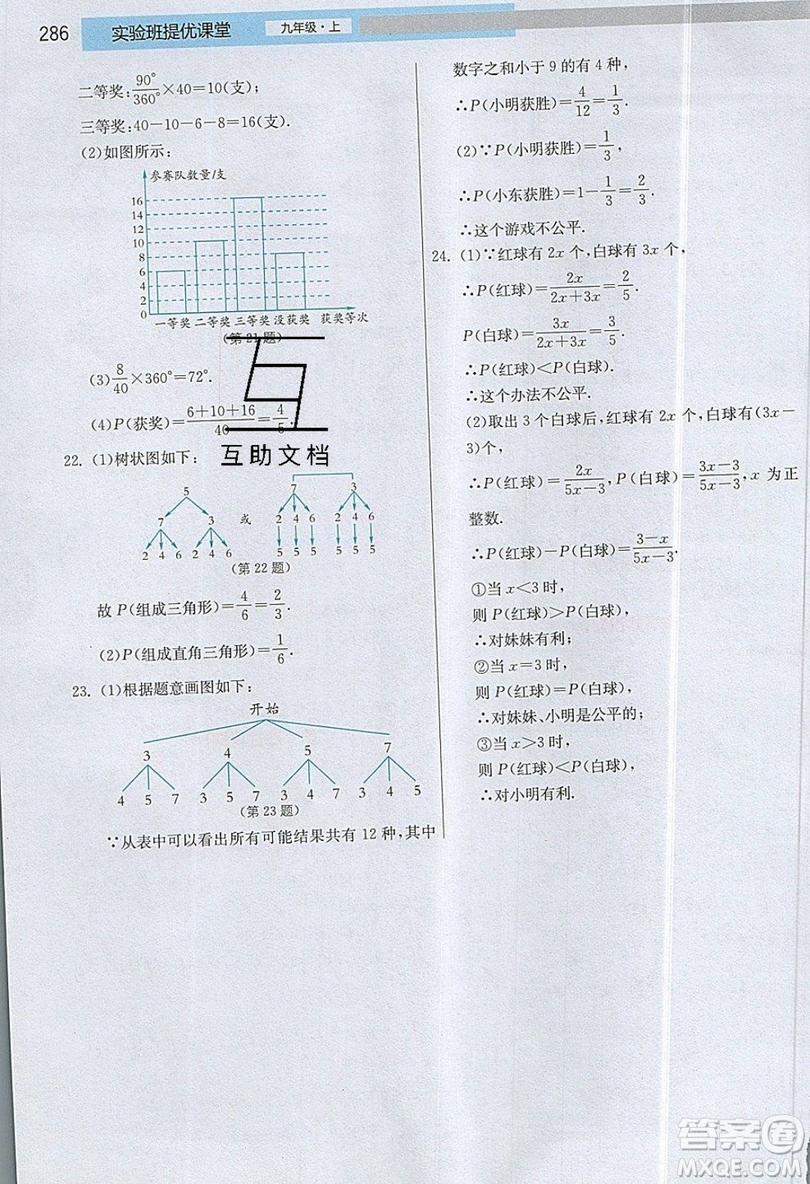 286
实验班提优课堂
九年级·上
二等奖:90°/360°×40=10(支);
三等奖:40-10-6-8=16(支).
(2)如图所示:
参赛队数量/支
16
14
12
10
8
6
4
2
0
一等奖 二等奖 三等奖 没获奖 获奖等次
(第21题)
(3)8/40×360°=72°.
(4)P(获奖)=(6+10+16)/40=4/5.
互助文档
22. (1)树状图如下:
5
7 3
2 4 6 2 4 6
或
7 3
2 4 6 2 4 6
5 5 5 5 5 5
(第22题)
故P(组成三角形)=4/6=2/3.
(2)P(组成直角三角形)=1/6.
23. (1)根据题意画图如下:
开始
3 4 5 7
4 5 7 3 5 7 3 4 7 3 4 5
(第23题)
∵从表中可以看出所有可能结果共有12种,其中
数字之和小于9的有4种,
∴P(小明获胜)=4/12=1/3.
(2)∵P(小明获胜)=1/3,
∴P(小东获胜)=1-1/3=2/3.
∴这个游戏不公平.
24. (1)∵红球有2x个,白球有3x个,
∴P(红球)=2x/(2x+3x)=2/5.
P(白球)=3x/(2x+3x)=3/5.
∴P(红球)<P(白球).
∴这个办法不公平.
(2)取出3个白球后,红球有2x个,白球有(3x-
3)个,
∴P(红球)=2x/(5x-3),P(白球)=(3x-3)/(5x-3),x为正
整数.
∴P(红球)-P(白球)=(3-x)/(5x-3).
①当x<3时,
则P(红球)>P(白球),
∴对妹妹有利;
②当x=3时,
则P(红球)=P(白球),
∴对妹妹、小明是公平的;
③当x>3时,
则P(红球)<P(白球),
∴对小明有利.
答案圈
MXQE.COM